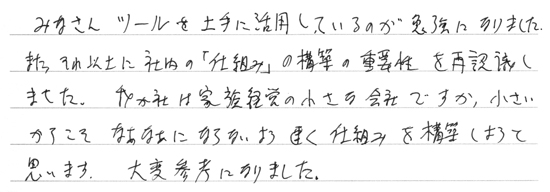 みなさん ツールを上手に活用しているのが勉強になりました。
また、それ以上に社内の「仕組み」の構築の重要性を再認識し
ました。我が社は家族経営の小さな会社ですが、小さい
からこそ なあなあにならないよう 早く 仕組みを構築しようと
思います。 大変参考になりました。